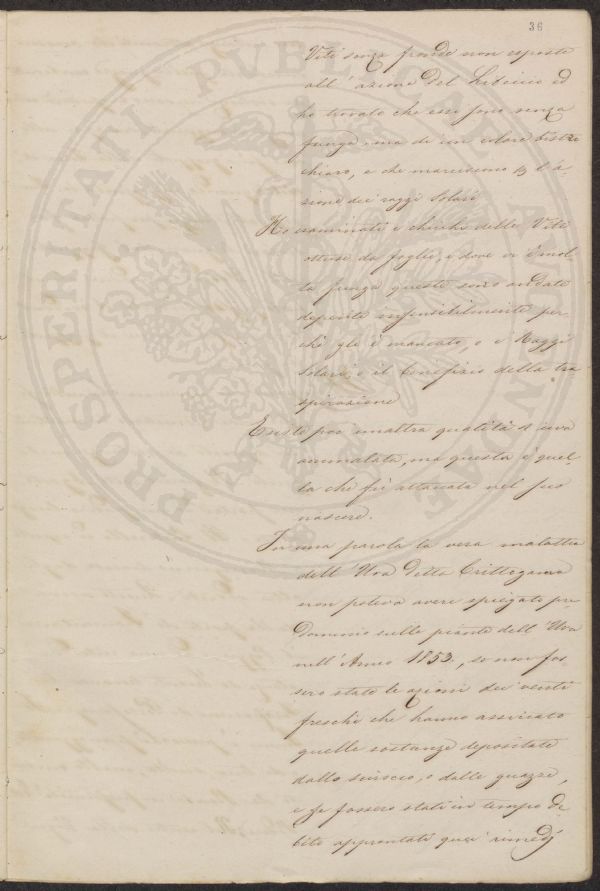 36
Viti senza fronde non esposte
all'azione del Libiccio ed
ho trovato che essi sono senza
funga, ma di un colore bistre
chiaro, e che marciscono p l'a-
zione dei raggi Solari
Ho esaminati i chicchi delle Viti
ottuse da foglie, e dove vi è mol
ta funga queste sono andate
deperite insensibilmente per-
chè gli è mancato, o i Raggi
Solari, o il Benefizio della tra
spirazione
Esiste poi unaltra qualità d uva
ammalata, ma questa è quel-
la che fù attaccata nel suo
nascere.
In una parola la vera malattia
dell Uva detta Crittogama
non poteva avere spiegato pre-
dominio sulle piante dell'Uva
nell'Anno 1853., se non fos
sero state le azioni dei venti
freschi che hanno assiccato
quelle sostanze depositate
dallo scirocco, o dalle guazze,
e se fossero stati in tempo de
bito approntati quei rimedj
PROSPERITATI PVBLICAE AVGENDAE